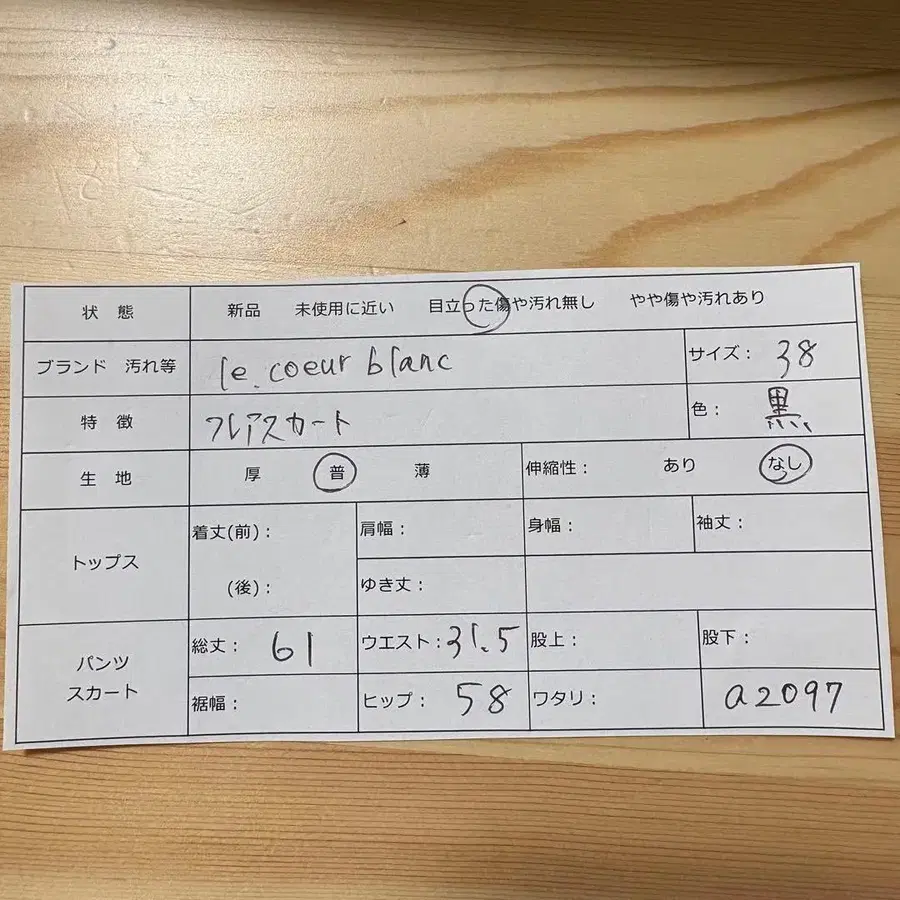 状態 新品 未使用に近い 目立った傷や汚れ無し やや傷や汚れあり
ブランド 汚れ等 le.coeur blanc サイズ： 38
特徴 フレアスカート 色： 黒
生地 厚 普 薄 伸縮性： あり なし
トップス 着丈(前)： 肩幅： 身幅： 袖丈：
(後)： ゆき丈：
パンツ スカート 総丈： 61 ウエスト： 31.5 股上： 股下：
裾幅： ヒップ： 58 ワタリ： a2097